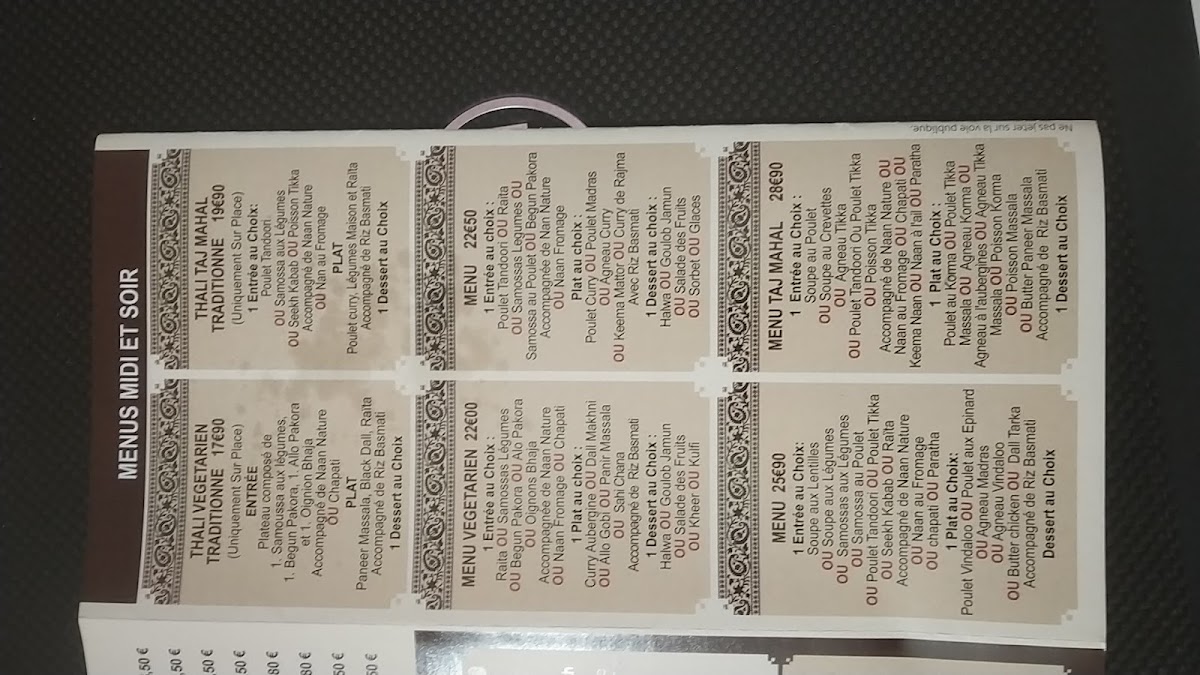 MENUS MIDI ET SOIR
THALI VEGETARIEN
TRADITIONNE 17€90
(Uniquement Sur Place)
ENTRÉE
Plateau composé de
1. Samoussa aux légumes,
1. Begun Pakora, 1. Allo Pakora
et 1. Oignion Bhaja
Accompagné de Naan Nature
OU Chapati
PLAT
Paneer Massala, Black Dall, Raïta
Accompagné de Riz Basmati
1 Dessert au Choix
THALI TAJ MAHAL
TRADITIONNE 19€90
(Uniquement Sur Place)
1 Entrée au Choix:
Poulet Tandoori.
OU Samossa aux Légumes
OU Seekh Kabab OU Poisson Tikka
Accompagné de Naan Nature
OU Nan au Fromage
PLAT
Poulet curry, Légumes Maison et Raïta
Accompagné de Riz Basmati
1 Dessert au Choix
MENU VEGETARIEN 22€00
1 Entrée au Choix :
Raita OU Samossas Légumes
OU Begun Pakora OU Alo Pakora
OU Oignons Bhaja
Accompagnée de Naan Nature
OU Naan Fromage OU Chapati
1 Plat au choix :
Curry Aubergine OU Dall Makhni
OU Allo Gobi OU Panir Massala
OU Sahi Chana
Accompagné de Riz Basmati
1 Dessert au Choix :
Halwa OU Goulob Jamun
OU Salade des Fruits
OU Kheer OU Kulfi
MENU 22€50
1 Entrée au choix :
Poulet Tandoori OU Raita
OU Samossas Legumes OU
Samossa au Poulet OU Begun Pakora
Accompagnée de Nan Nature
OU Naan Fromage
Plat au choix :
Poulet Curry OU Poulet Madras
OU Agneau Curry
OU Keema Mator OU Curry de Rajma
Avec Riz Basmati
1 Dessert au choix :
Halwa OU Goulob Jamun
OU Salade des Fruits
OU Sorbet OU Glaces
MENU 25€90
1 Entrée au Choix:
Soupe aux Lentilles
OU Soupe aux Légumes
OU Samossas aux Légumes
OU Samossa au Poulet
OU Poulet Tandoori OU Poulet Tikka
OU Seekh Kabab OU Raïta
Accompagné de Naan Nature
OU Naan au Fromage
OU chapati OU Paratha
1 Plat au Choix:
Poulet Vindaloo OU Poulet aux Epinard
OU Agneau Madras
OU Agneau Vindaloo
OU Butter chicken OU Dall Tarka
Accompagné de Riz Basmati
Dessert au Choix
MENU TAJ MAHAL 28€90
1 Entrée au Choix:
Soupe au Poulet
OU Soupe au Crevettes
OU Agneau Tikka
OU Poulet Tandoori Ou Poulet Tikka
OU Poisson Tikka
Accompagnée de Naan Nature OU
Naan au Fromage OU Chapati OU
Keema Naan OU Naan à l'ail OU Paratha
1 Plat au Choix:
Poulet au Korma OU Poulet Tikka
Massala OU Agneau Korma OU
Agneau à l'aubergines OU Agneau Tikka
Massala OU Poisson Korma
OU Poisson Massala
OU Butter Paneer Massala
Accompagné de Riz Basmati
1 Dessert au Choix
Ne pas jeter sur la voie publique.
,50 €
,50 €
,50 €
50 €
80 €
80 €
50 €
50 €